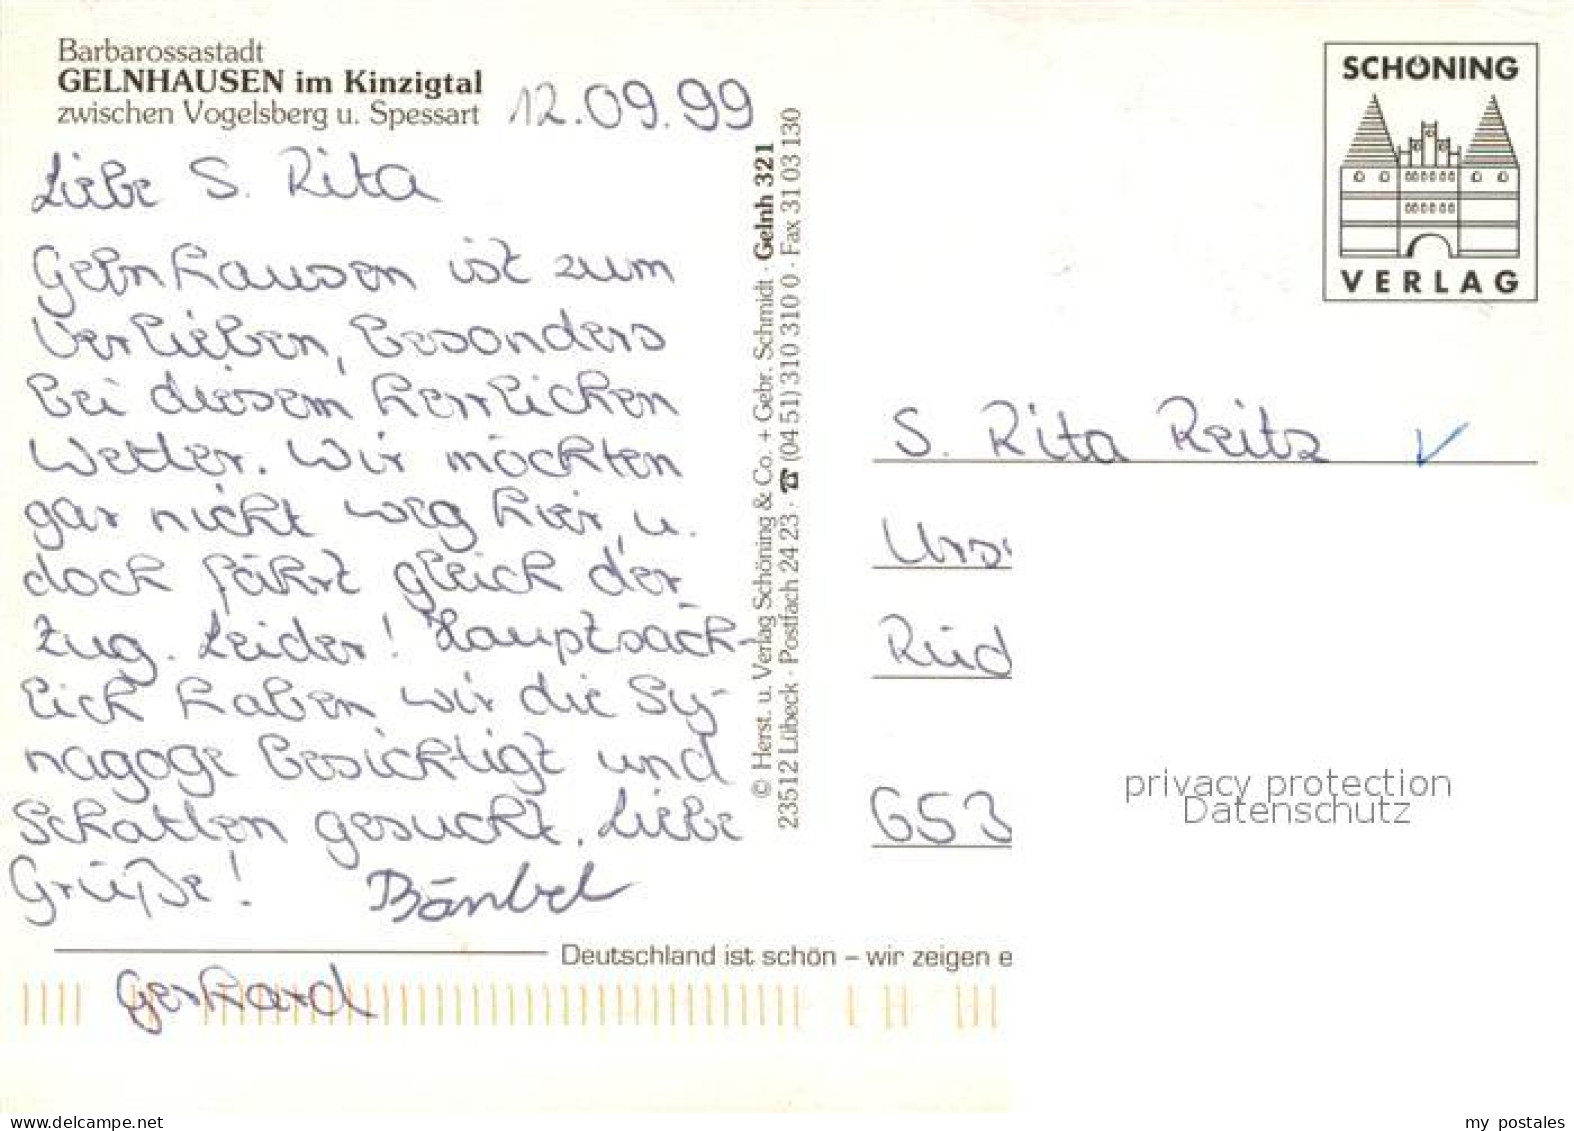 Barbarossastadt
GELNHAUSEN im Kinzigtal
zwischen Vogelsberg u. Spessart
12.09.99
Liebe S. Rita
Gelnhausen ist zum
Verlieben, besonders
bei diesem herrlichen
Wetter. Wir möchten
gar nicht weg hier, u.
doch fährt gleich der
Zug. Leider! Hauptsäch-
lich haben wir die Sy-
nagoge besichtigt und
Schatten gesucht. Liebe
Grüße! Bärbel
Gerhard
© Herst. u. Verlag Schöning & Co. + Gebr. Schmidt · Gelnh 321
23512 Lübeck · Postfach 24 23 · ☎ (04 51) 310 310 0 · Fax 31 03 130
SCHÖNING
VERLAG
S. Rita Reitz
Urs
Rüd
653
privacy protection
Datenschutz
Deutschland ist schön – wir zeigen e
www.delcampe.net
my postales